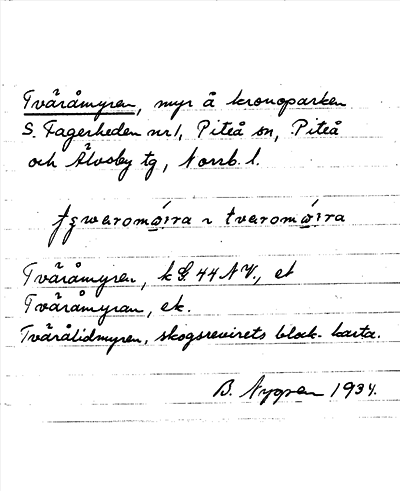 Tväråmyren, myr å kronoparken
S. Fagerheden nr 1, Piteå sn, Piteå
och Älvsby tg, Norrb. l.
tvaromɷ́ira
Tväråmyren, k S. 44 NV., et
Tväråmyran, ek.
Tväråtidmyren, skogsrevirets block-karta.
B. Nygren 1934.